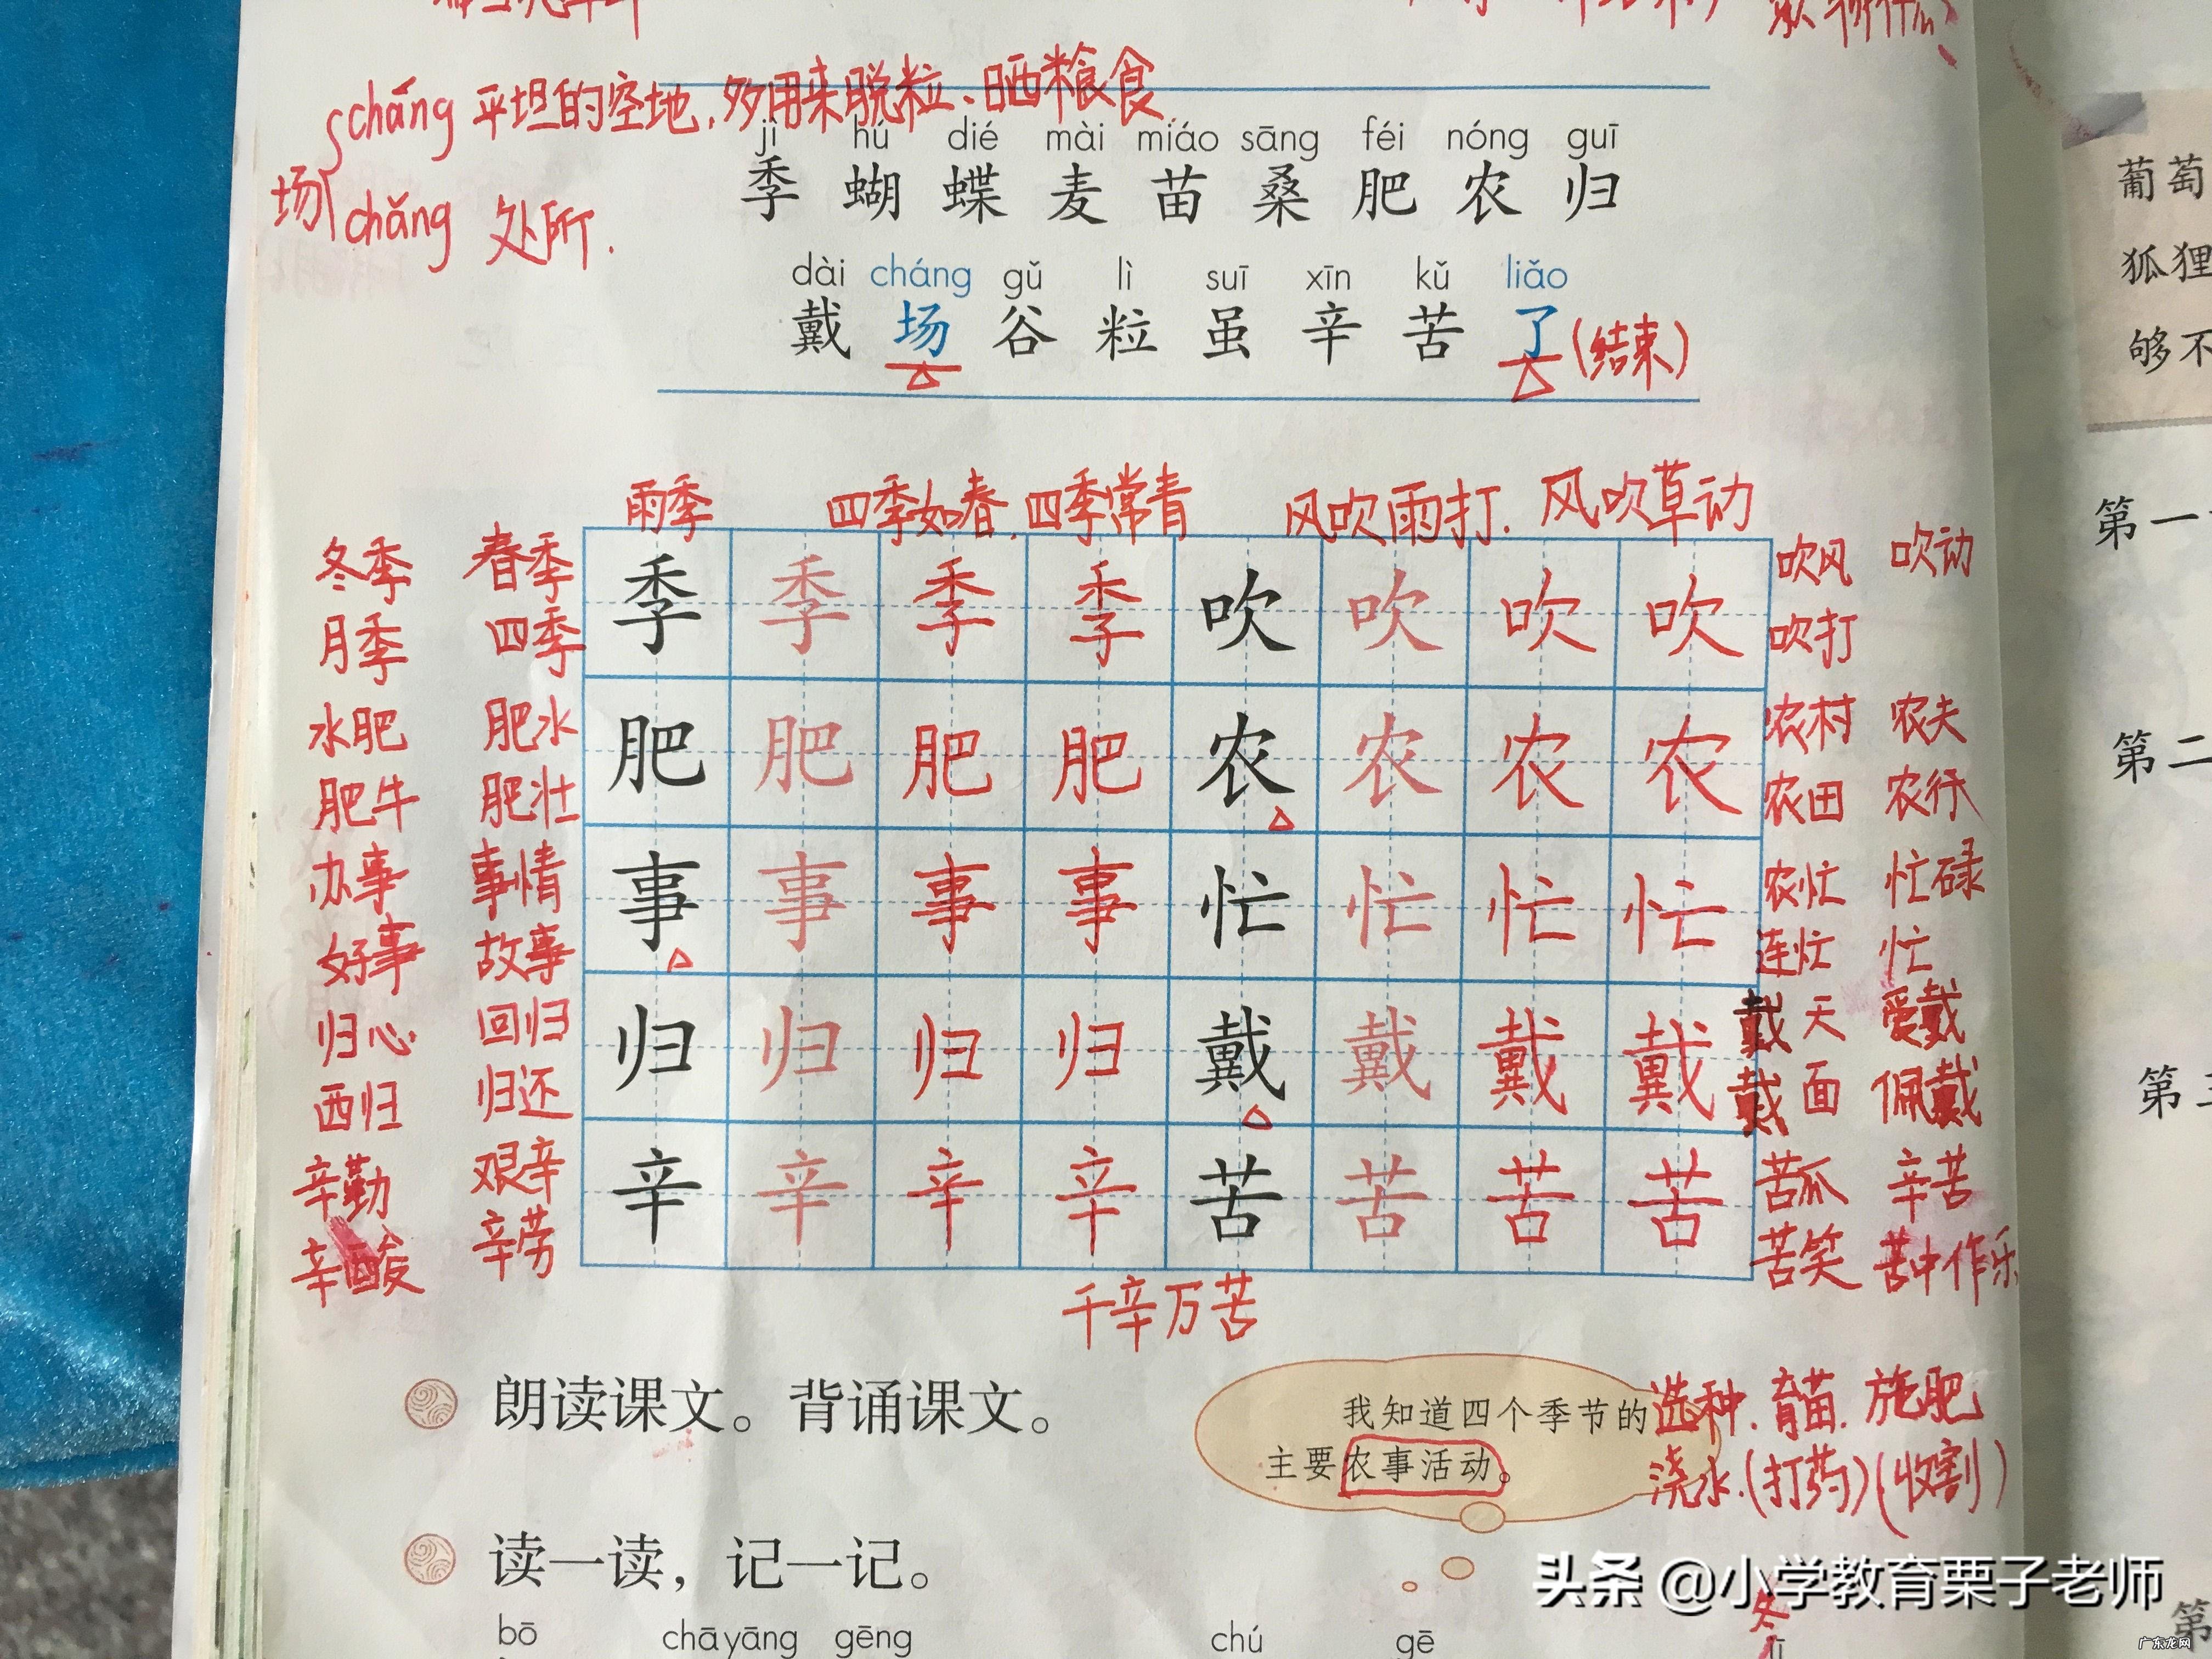 cháng 平坦的空地,多用来脱粒、晒粮食
场
chǎng 处所.
jì hú dié mài miáo sāng féi nóng guī
季 蝴 蝶 麦 苗 桑 肥 农 归
dài cháng gǔ lì suī xīn kǔ liǎo
戴 场 谷 粒 虽 辛 苦 了 (结束)
雨季 四季如春,四季常青 风吹雨打. 风吹草动
冬季 春季 季 季 季 季 吹 吹 吹 吹 吹风 吹动
月季 四季 吹打
水肥 肥水 肥 肥 肥 肥 农 农 农 农 农村 农夫
肥牛 肥壮 农田 农行
办事 事情 事 事 事 事 忙 忙 忙 忙 农忙 忙碌
好事 故事 连忙 忙
归心 回归 归 归 归 归 戴 戴 戴 戴 戴天 爱戴
西归 归还 戴面 佩戴
辛勤 艰辛 辛 辛 辛 辛 苦 苦 苦 苦 苦瓜 辛苦
辛酸 辛劳 苦笑 苦中作乐
千辛万苦
朗读课文。背诵课文。
我知道四个季节的
主要农事活动。
选种.育苗.施肥
浇水.(打药)(收割)
读一读，记一记。
bō chāyāng gēng chú gē
冬
葡萄
狐狸
够不
第一
第二
第
第
头条 @小学教育栗子老师
广东龙网